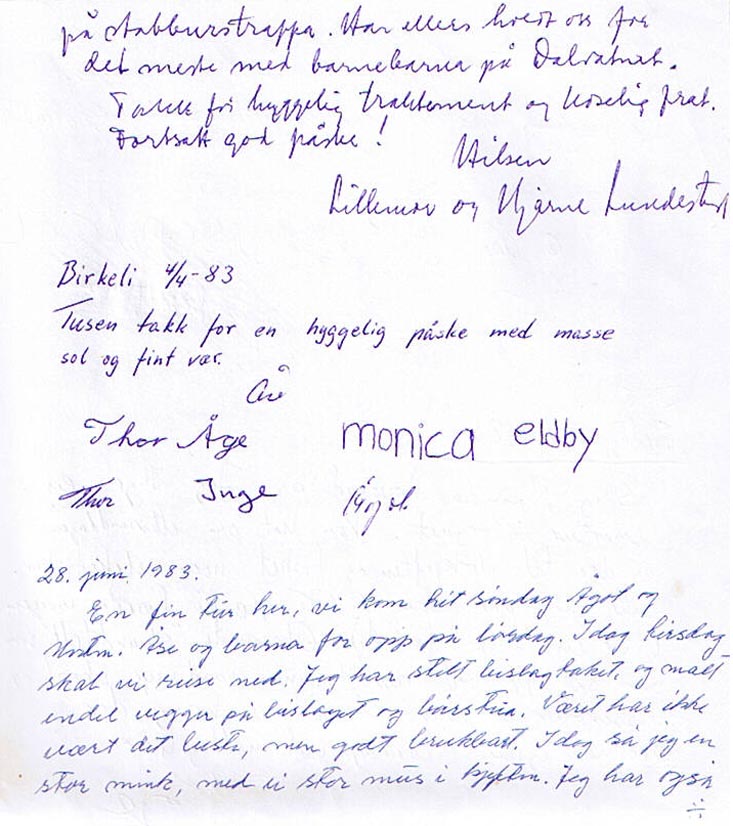 på stabburstrappa. Har ellers holdt oss for
det meste med barnebarna på Dalvatnet.
Takk for hyggelig traktement og koselig prat.
Fortsatt god påske!
Hilsen
Lillemor og Bjarne Lundestad
Birkeli 4/4-83
Tusen takk for en hyggelig påske med masse
sol og fint vær.
Thor Åge monica eldby
Thor Inge
28. juni 1983.
En fin tur her, vi kom hit søndag Ågot og
Åse og barna for opp på lørdag. Idag tirsdag
skal vi reise ned. Jeg har stelt bislagtaket, og malt
endel vegger på bislaget og bårstua. Været har ikke
vært det beste, men godt brukbart. Idag så jeg en
stor mink, med ei stor mus i kjeften. Jeg har også